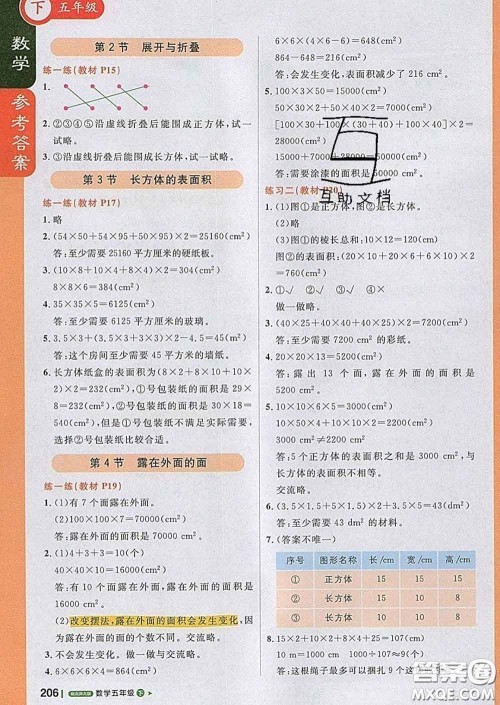 下 五年级
数学
参考答案
第2节 展开与折叠
练一练(教材 P15)
1.
2.②③④⑤沿虚线折叠后能围成正方体,试一
试略。
3.①③沿虚线折叠后能围成长方体,试一试略。
第3节 长方体的表面积
练一练(教材 P17)
1.略
2.(54×50+54×95+50×95)×2=25160(cm²)
答:至少需要 25160 平方厘米的硬纸板。
3.(10×8+10×4+8×4)×2=304(cm²)
8×8×6=384(cm²)
4.35×35×5=6125(cm²)
答:至少需要 6125 平方厘米的玻璃。
5.3×3+(3×3+3×3)×2-4.5=45(m²)
答:这个房间至少需要 45 平方米的墙纸。
6.长方体纸盒的表面积为(8×2+8×10+10×
2)×2=232(cm²),①号包装纸的面积是 29×
8=232(cm²),②号包装纸的面积是 30×18=
540(cm²),但是①号包装纸不能满足所需,
选择②号包装纸比较合适。
第4节 露在外面的面
练一练(教材 P19)
1.(1)有 7 个面露在外面。
(2)100×100×7=70000(cm²)
答:露在外面的面积是 70000 cm²。
2.(1)4+3+3=10(个)
40×40×10=16000(cm²)
答:有 10 个面露在外面,露在外面的面积是
16000 cm²。
(2)改变摆法,露在外面的面积会发生变化,因
为露在外面的面的个数不同。交流略。
3.不会发生变化。
4.6×6×6×4=864(cm²)
206 数学五年级 下
6×6×(4×6-4-2)=648(cm²)
864-648=216(cm²)
答:会发生变化,表面积减少了 216 cm²。
5.100×3×50=15000(cm²)
50×30×2+50×40×2=7000(cm²)
[100×30+100×(30+40)+100×(30+40+
15000+7000+28000=50000(cm²)
答:需要涂漆的面积是 50000 cm²。
互助文档
练习二(教材 P20)
1.(1)图①是正方体,图②是长方体。
(2)略
(3)图①的棱长总和:10×12=120(cm)
图②的表面积:(20×10+20×6+10×6)×2=
760(cm²)
2.①√ ②√ ③√ ④×
做一做略。
3.(40×25+40×40+25×40)×2=7200(cm²)
答:至少需要 7200 cm² 的彩纸。
4.20×20×13=5200(cm²)
答:露出 13 个面,露在外面的面积是
5200 cm²。
5.10×10×6×5=3000(cm²)
(50×10+50×10+10×10)×2=2200(cm²)
答:5 个正方体的表面积之和是 3000 cm²,与
长方体的表面积不相等。
交流略。
6.3.5×2+(5×3.5+1×5+3.5×1)×2-3.5×
2×3=43(dm²)
答:至少需要 43 dm² 的材料。
7.(答案不唯一)
序号 图形名称 长/cm 宽/cm 高/cm
① 正方体 15 15 15
② 长方体 10 10 8
③ 长方体 15 10 8
8.15×2+10×2+8×4+10=92(cm)
做一做略。
答:这根绳子最多可以捆扎 92 cm。
答案圈
MXQE.COM